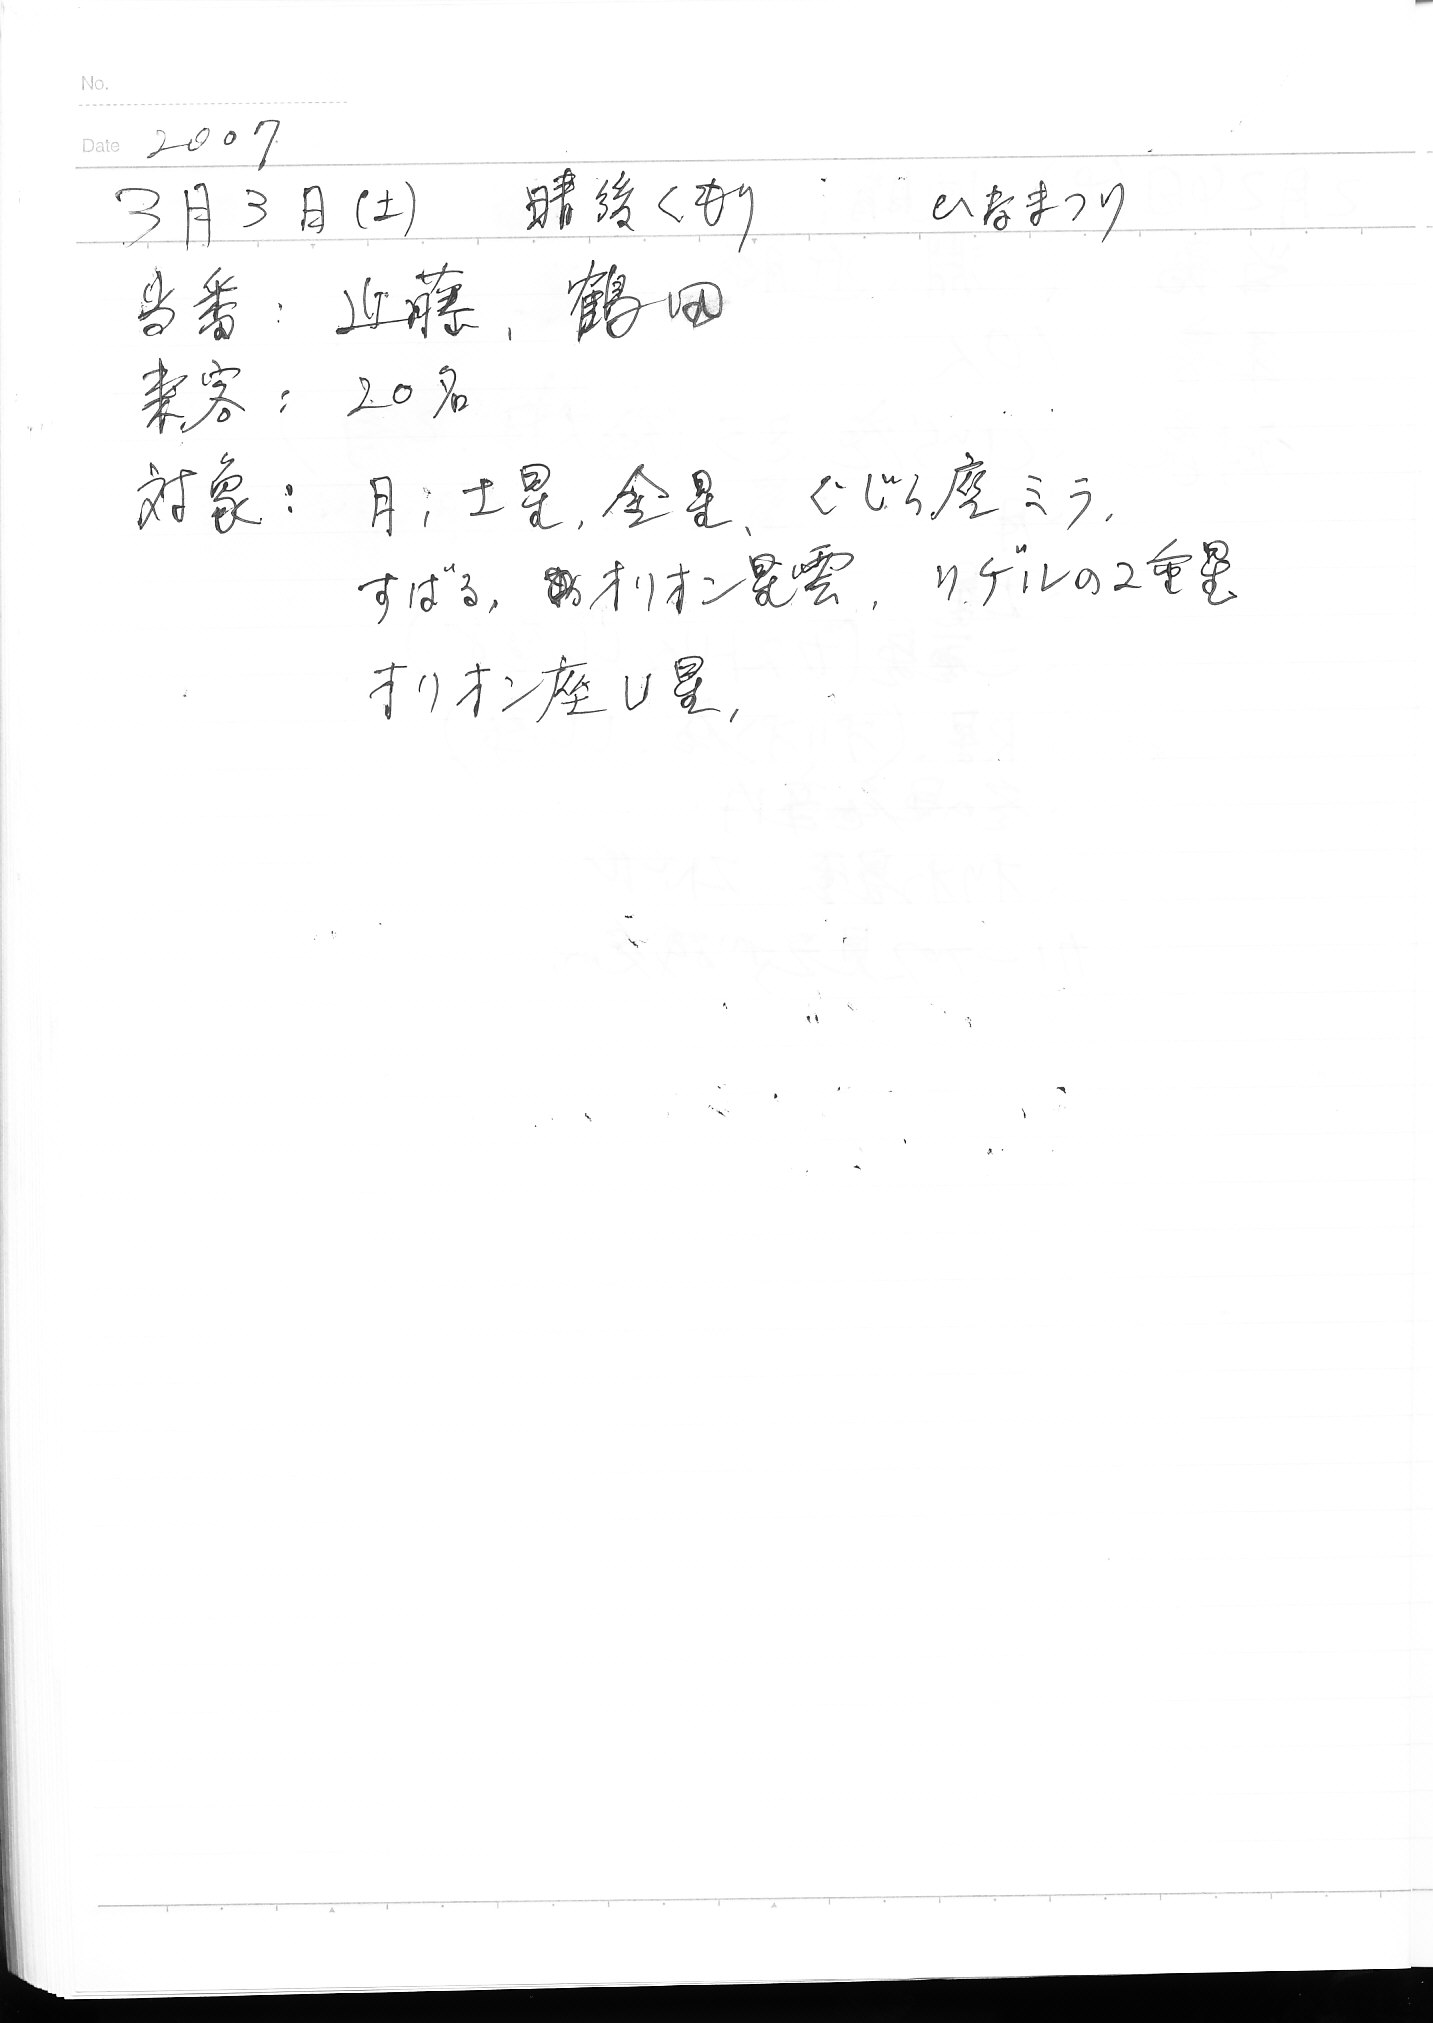 No.
Date 2007
3月3日(土) 晴後くもり ひなまつり
当番: 近藤, 鶴田
来客: 20名
対象: 月, 土星, 金星, くじら座ミラ,
すばる, オリオン星雲, リゲルの2重星
オリオン座U星,